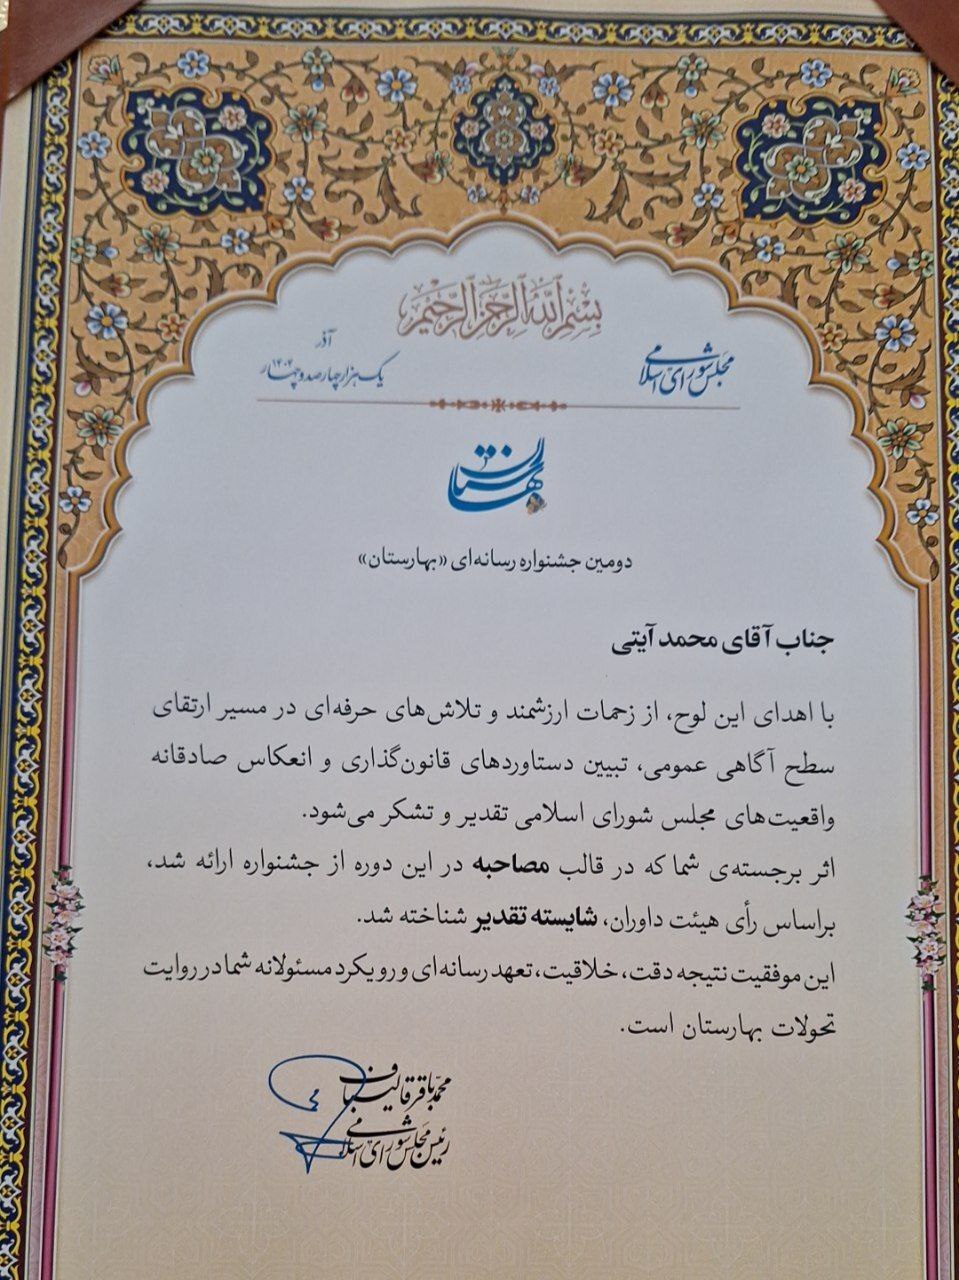 بسم الله الرحمن الرحیم
مجلس شورای اسلامی
آذر
یک هزار چهارصد و چهار ۱۴۰۴
بهارستان
دومین جشنواره رسانه‌ای «بهارستان»
جناب آقای محمد آیتی
با اهدای این لوح، از زحمات ارزشمند و تلاش‌های حرفه‌ای در مسیر ارتقای
سطح آگاهی عمومی، تبیین دستاوردهای قانون‌گذاری و انعکاس صادقانه
واقعیت‌های مجلس شورای اسلامی تقدیر و تشکر می‌شود.
اثر برجسته‌ی شما که در قالب مصاحبه در این دوره از جشنواره ارائه شد،
براساس رأی هیئت داوران، شایسته تقدیر شناخته شد.
این موفقیت نتیجه دقت، خلاقیت، تعهد رسانه‌ای و رویکرد مسئولانه شما در روایت
تحولات بهارستان است.
محمدباقر قالیباف
رئیس مجلس شورای اسلامی